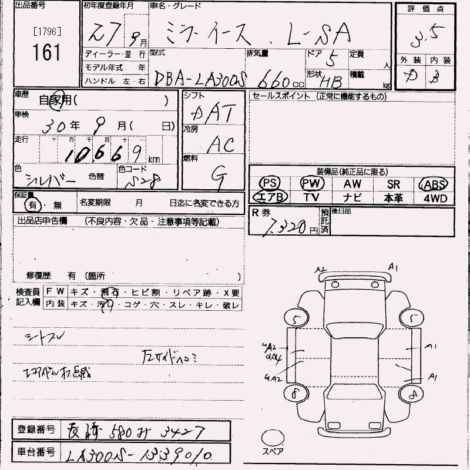 出品番号 初年度登録年月 車名・グレード 評価点
[1796] 161 27年9月 ミライース L-SA 3.5
ディーラー・並行 型式 排気量 ドア 定員 外装 内装
モデル年式 年 DBA-LA300S 660cc 5 人 D B
ハンドル 左・右 形状 HB 積載 kg
車歴 自家用( ) シフト セールスポイント (正常に機能するもの)
車検 30年9月( 日) DAT
走行 十万 万 千 冷房
10669km AC
色 色替 色コード 燃料
シルバー S28 G 装備品(純正品に限る)
PS PW AW SR ABS
保証書 エアB TV ナビ 本革 4WD
有・無 名変期限 月 日迄に名変できる方 R券 7320円 預託済 検日品
出品店申告欄 (不良内容・欠品・注意事項等記載)
修復歴 有 (箇所 )
検査員記入欄 FW キズ・飛石・ヒビ割・リペア跡・X要
内装 キズ・汚・コゲ・穴・スレ・キレ・破レ
A2 A1
5 5
シートスレ
A2 A1
A1
8 8
スペア
登録番号 長崎 580 み 3427
車台番号 LA300S-1339010